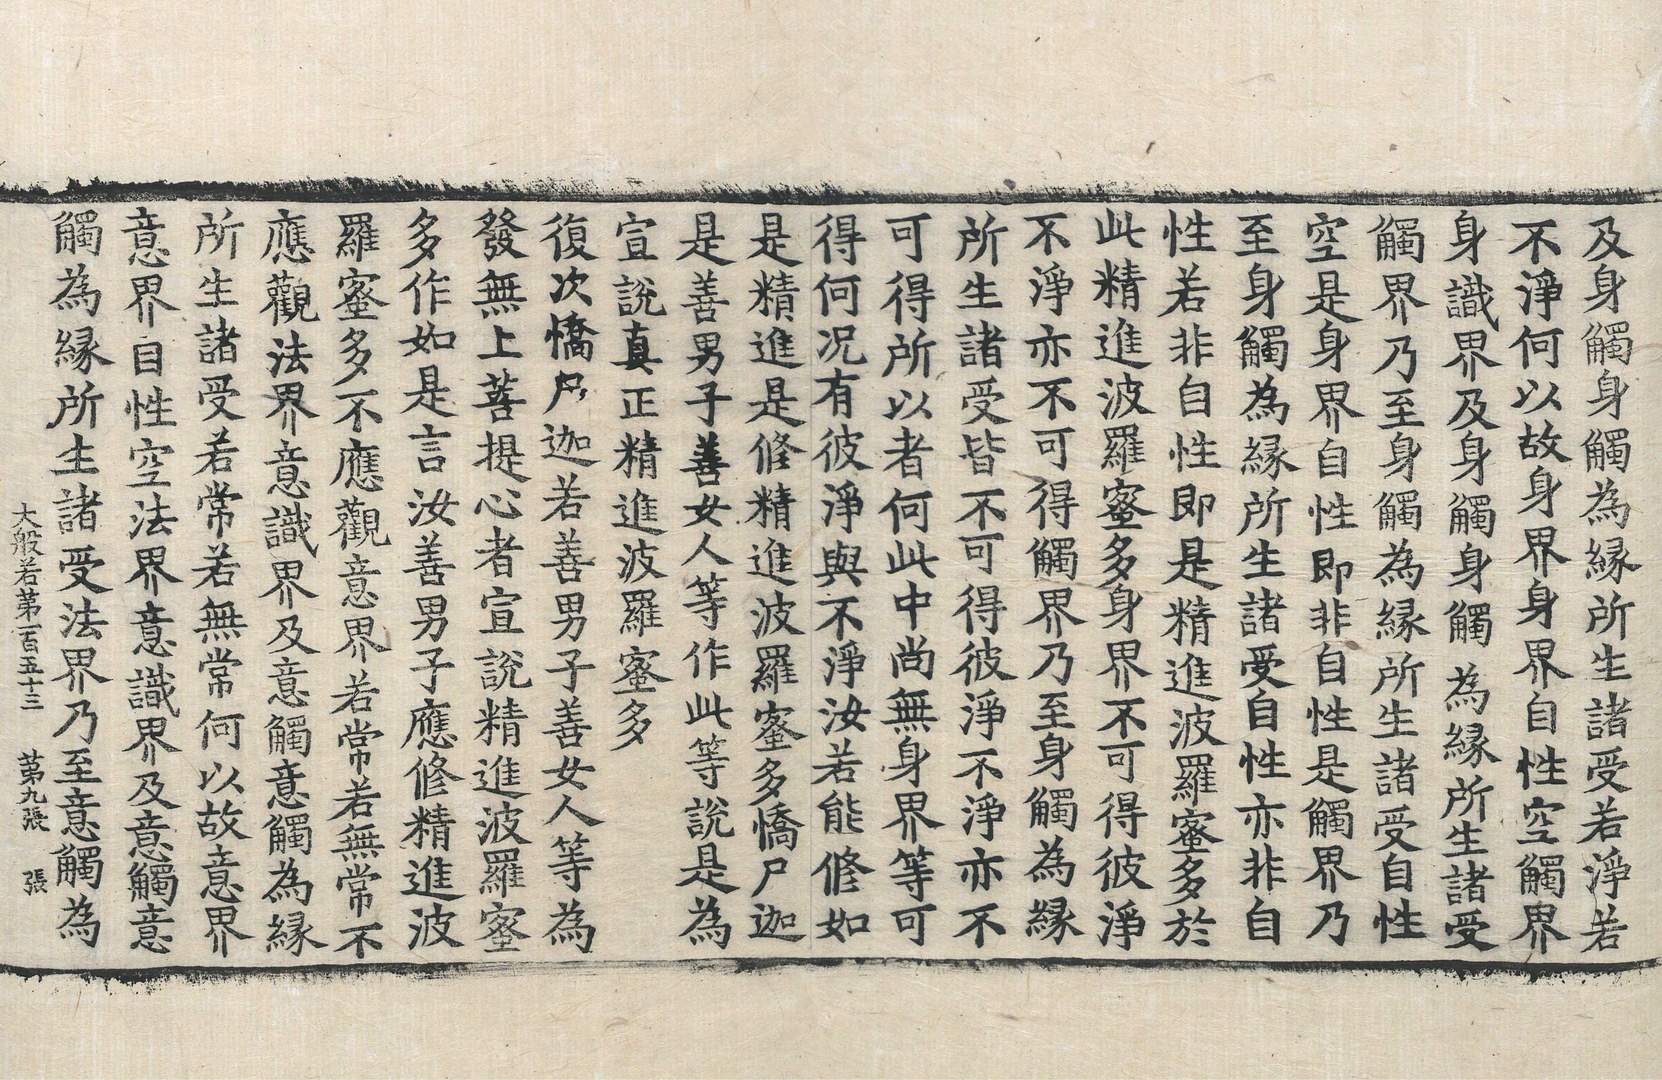 及身觸身觸為緣所生諸受若淨若
不淨何以故身界身界自性空觸界
身識界及身觸身觸為緣所生諸受
觸界乃至身觸為緣所生諸受自性
空是身界自性即非自性是觸界乃
至身觸為緣所生諸受自性亦非自
性若非自性即是精進波羅蜜多於
此精進波羅蜜多身界不可得彼淨
不淨亦不可得觸界乃至身觸為緣
所生諸受皆不可得彼淨不淨亦不
可得所以者何此中尚無身界等可
得何況有彼淨與不淨汝若能修如
是精進是修精進波羅蜜多憍尸迦
是善男子善女人等作此等說是為
宣說真正精進波羅蜜多
復次憍尸迦若善男子善女人等為
發無上菩提心者宣說精進波羅蜜
多作如是言汝善男子應修精進波
羅蜜多不應觀意界若常若無常不
應觀法界意識界及意觸意觸為緣
所生諸受若常若無常何以故意界
意界自性空法界意識界及意觸意
觸為緣所生諸受法界乃至意觸為
大般若第一百五十三 第九張 張